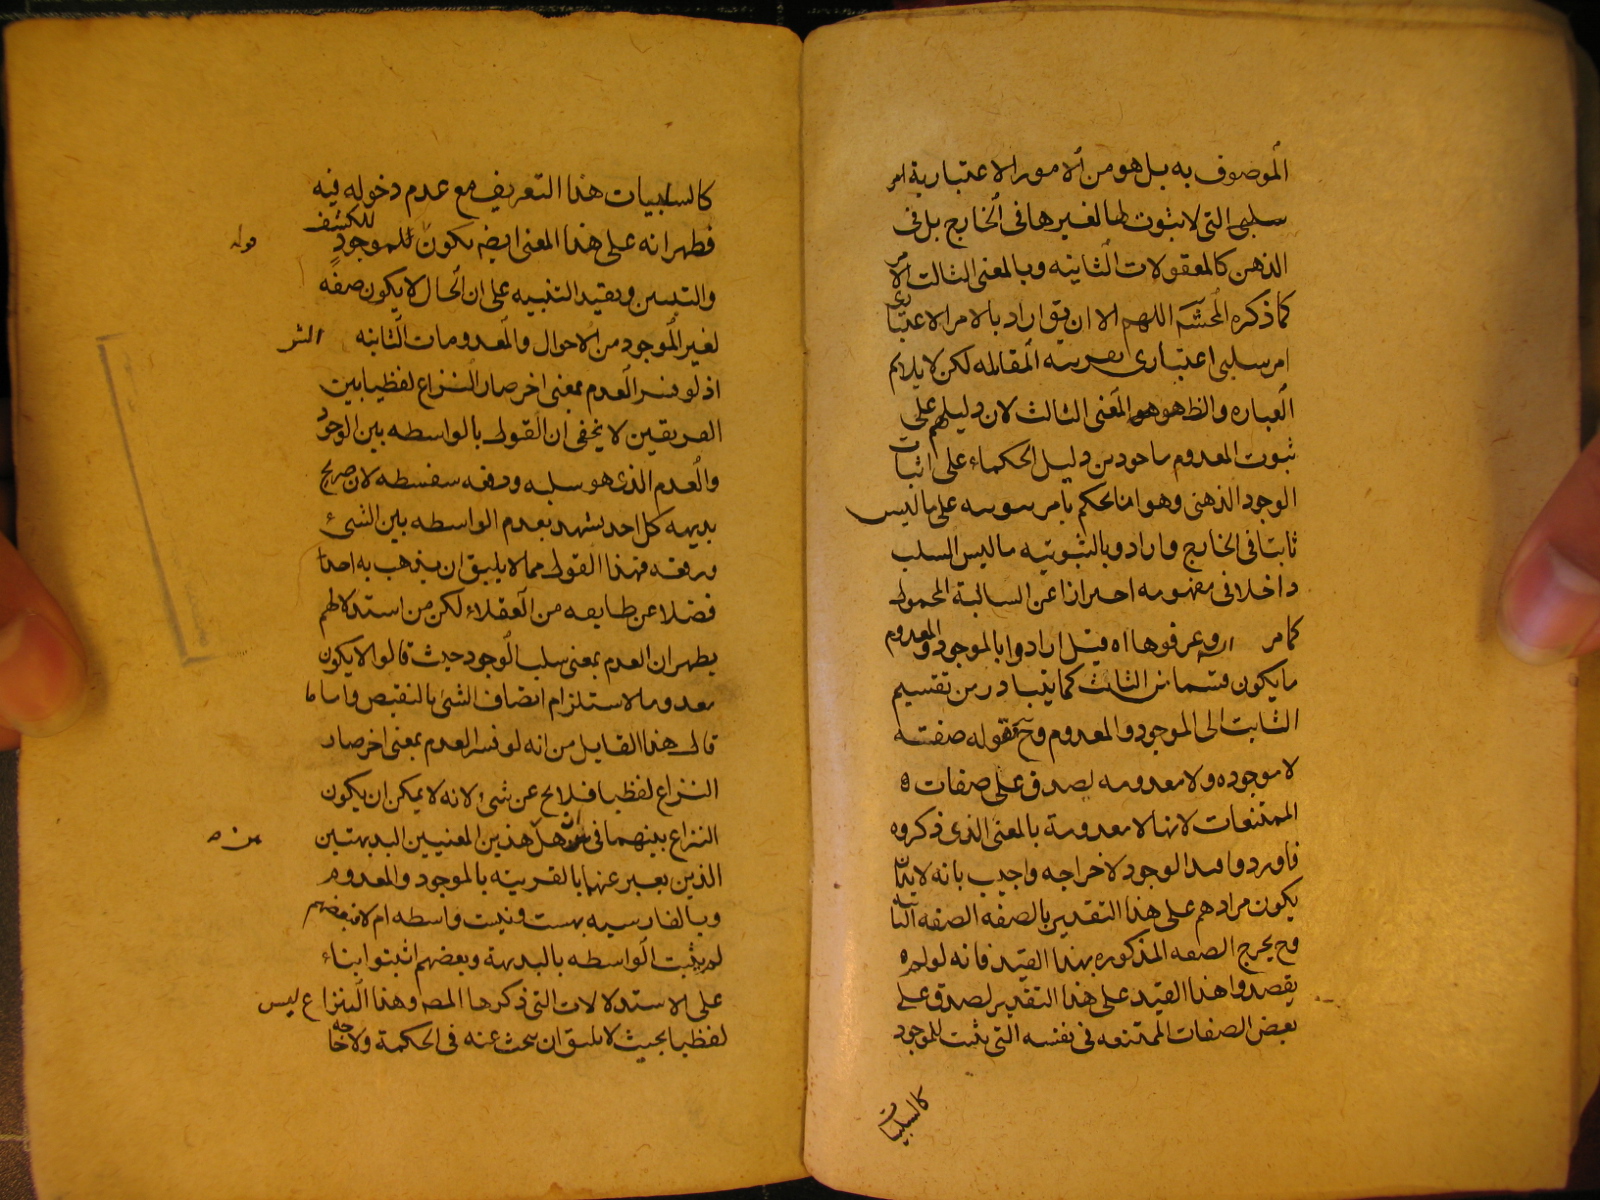 الموصوف به بل هو من الامور الاعتبارية امر
سلبى التى لا ثبوت لها لغيرها فى الخارج بل فى
الذهن كالمعقولات الثانيه وبالمعنى الثالث الامر
كما ذكره المحشى اللهم الا ان يق اراد بالامر الاعتبارى
امر سلبى اعتبارى بقرينه المقابله لكن لا يلايم
العباره والظ هو المعنى الثالث لان دليلهم على
ثبوت المعدوم ماخوذ من دليل الحكماء على اثبات
الوجود الذهنى وهو انا نحكم بامر ثبوتيه على ما ليس
ثابتا فى الخارج وارادوا بالثبوتيه ما ليس السلب
داخلا فى مفهومه احترازا عن السالبة المحمول
كما مر عرفوها اه قيل ارادوا بالموجود والمعدوم
ما يكون قسما من الثالث كما يتبادر من تقسيم
الثابت الى الموجود والمعدوم وح فقوله صفته
لا موجوده ولا معدومه يصدق على صفات
الممتنعات لانها لا معدومة بالمعنى الذى ذكروه
فاوردوا قيد الوجود لاخراجه واجيب بانه
يكون مرادهم على هذا التقدير بالصفه الصفه الثابته
وح يخرج الصفه المذكوره بهذا القيد فانه لو لم
يقصدوا هذا القيد على هذا التقدير لصدق على
بعض الصفات الممتنعه فى نفسه التى يثبت للموجود
كالسلبيات
كالسلبيات هذا التعريف مع عدم دخوله فيه
فظهر انه على هذا المعنى ايضه يكون للموجود للكشف
قوله
والتبيين ويفيد التنبيه على ان الحال لا يكون صفه
لغير الموجود من الاحوال والمعدومات الثابته
اذ لو فسر العدم بمعنى اخر صار النزاع لفظيا بين
الفريقين لا يخفى ان القول بالواسطه بين الوجود
والعدم الذى هو سلبه ورفعه سفسطه لان صريح
بديهه كل احد يشهد بعدم الواسطه بين الشىء
ورفعه فهذا القول مما لا يليق ان يذهب به احد
فضلا عن طايفه من العقلاء لكن من استدلالهم
يظهر ان العدم بمعنى سلب الوجود حيث قالوا لا يكون
معدوما لاستلزام اتصاف الشئ بالنقيض واما ما
قال هذا القايل من انه لو فسر العدم بمعنى اخر صار
النزاع لفظيا فلا يخ عن شئ لانه لا يمكن ان يكون
النزاع بينهما فى هل هذين المعنيين البديهتين
الذين يعبر عنهما بالقرينه بالموجود والمعدوم
وبالفارسيه بهست ونيست واسطه ام لا فبعضهم
لم يثبت الواسطه بالبديهة وبعضهم اثبتوا بناء
على الاستدلالات التى ذكرها المصه وهذا النزاع ليس
لفظيا بحيث لا يليق ان يبحث عنه فى الحكمة ولا